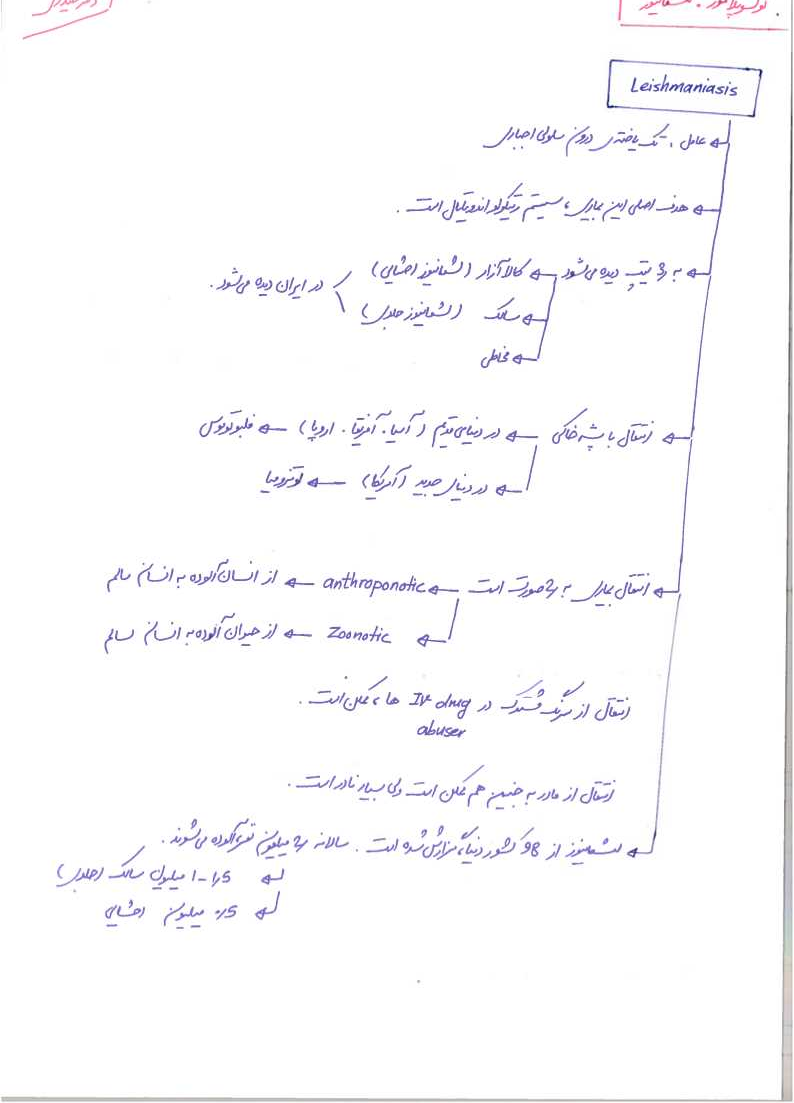 توکسوپلاسموز . لشمانیوز
Leishmaniasis
عامل : تک یاخته ی درون سلولی اجباری
هدف اصلی این بیماری ، سیستم رتیکولواندوتلیال است .
به 3 تیپ دیده می شود ← کالاآزار (لشمانیوز احشایی) } در ایران دیده می شود .
← سالک (لشمانیوز جلدی)
← مخاطی
انتقال با پشه خاکی ← در دنیای قدیم (آسیا . آفریقا . اروپا) ← فلبوتوموس
← در دنیای جدید (آمریکا) ← لوتزومیا
انتقال بیماری به 2 صورت است ← anthroponotic ← از انسان آلوده به انسان سالم
← Zoonotic ← از حیوان آلوده به انسان سالم
انتقال از سرنگ مشترک در IV drug ها ، ممکن است .
abuser
انتقال از مادر به جنین هم ممکن است ولی بسیار نادر است .
لشمانیوز از 98 کشور دنیا گزارش شده است . سالانه 2 میلیون نفر آلوده می شوند .
← 1-1,5 میلیون سالک (جلدی)
← 0,5 میلیون احشایی